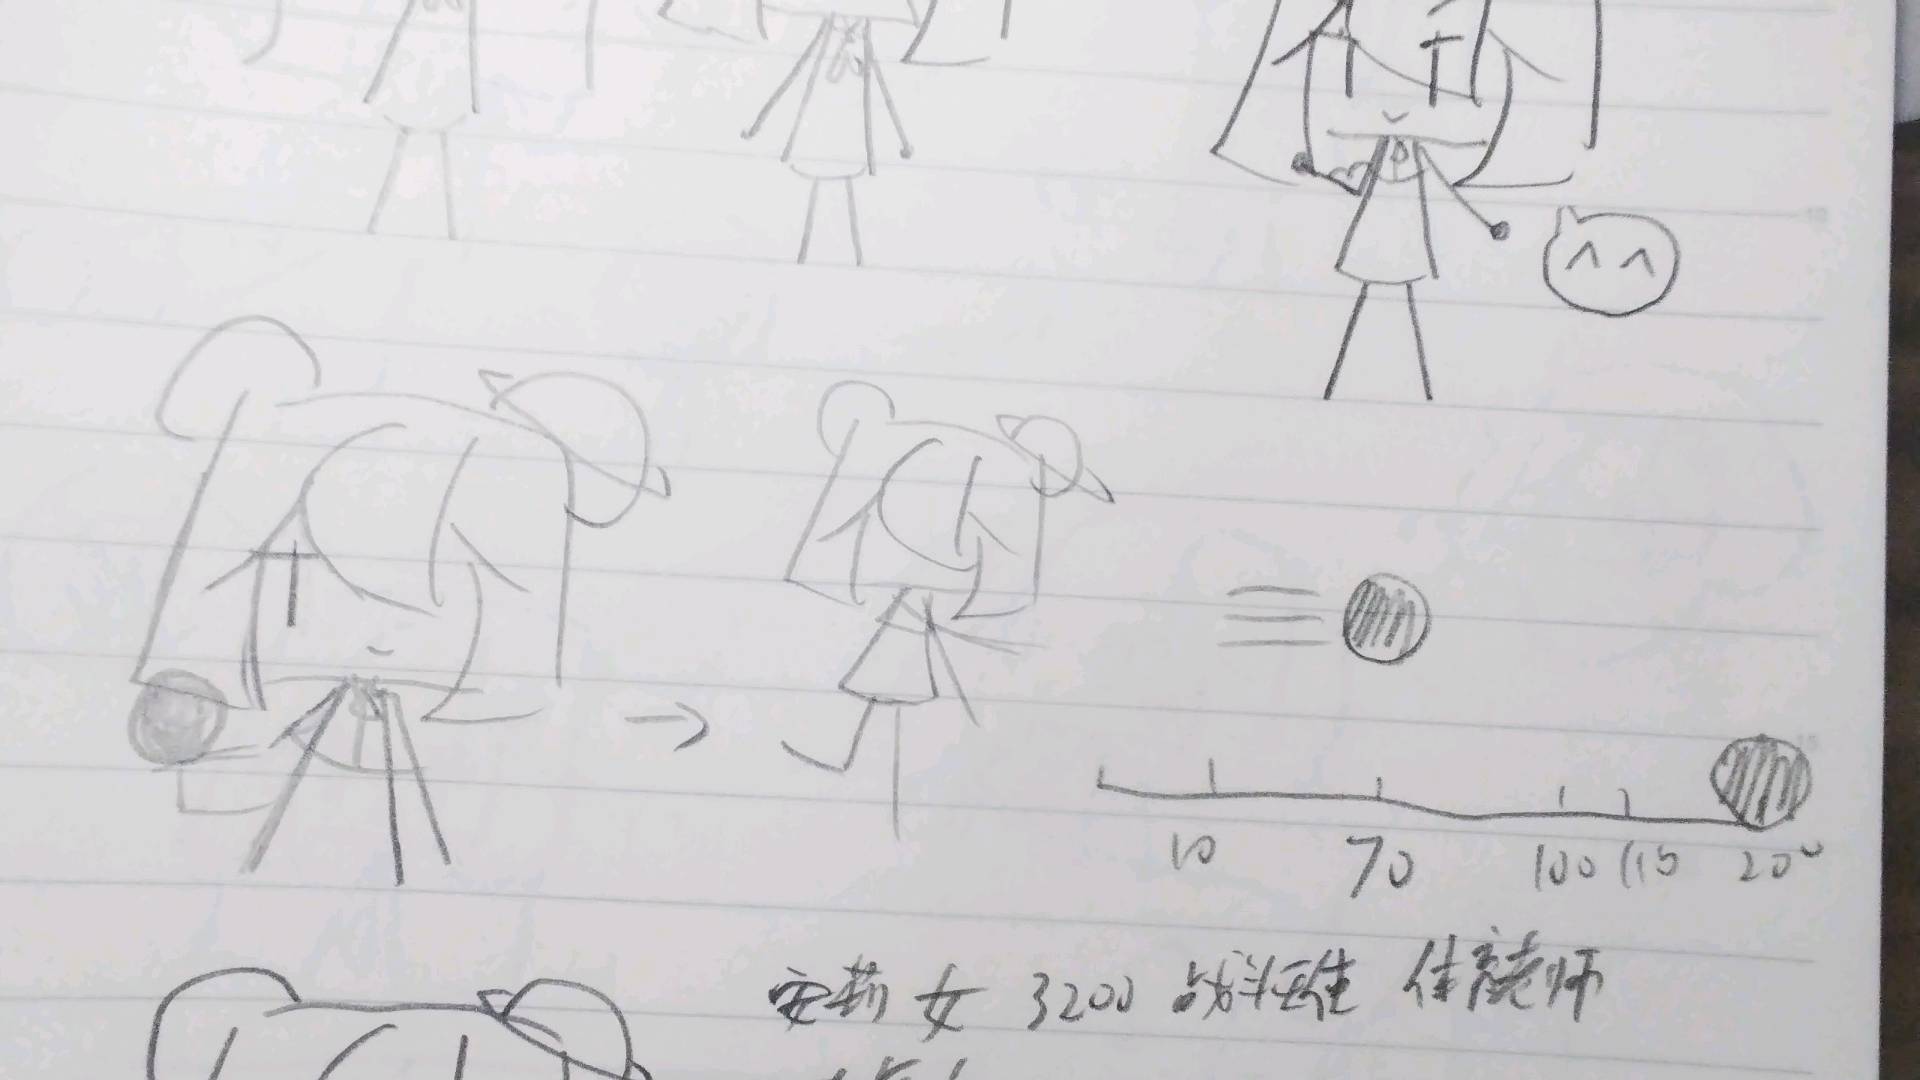 10 70 100 115 200
安莉 女 3200 战斗班 体育老师